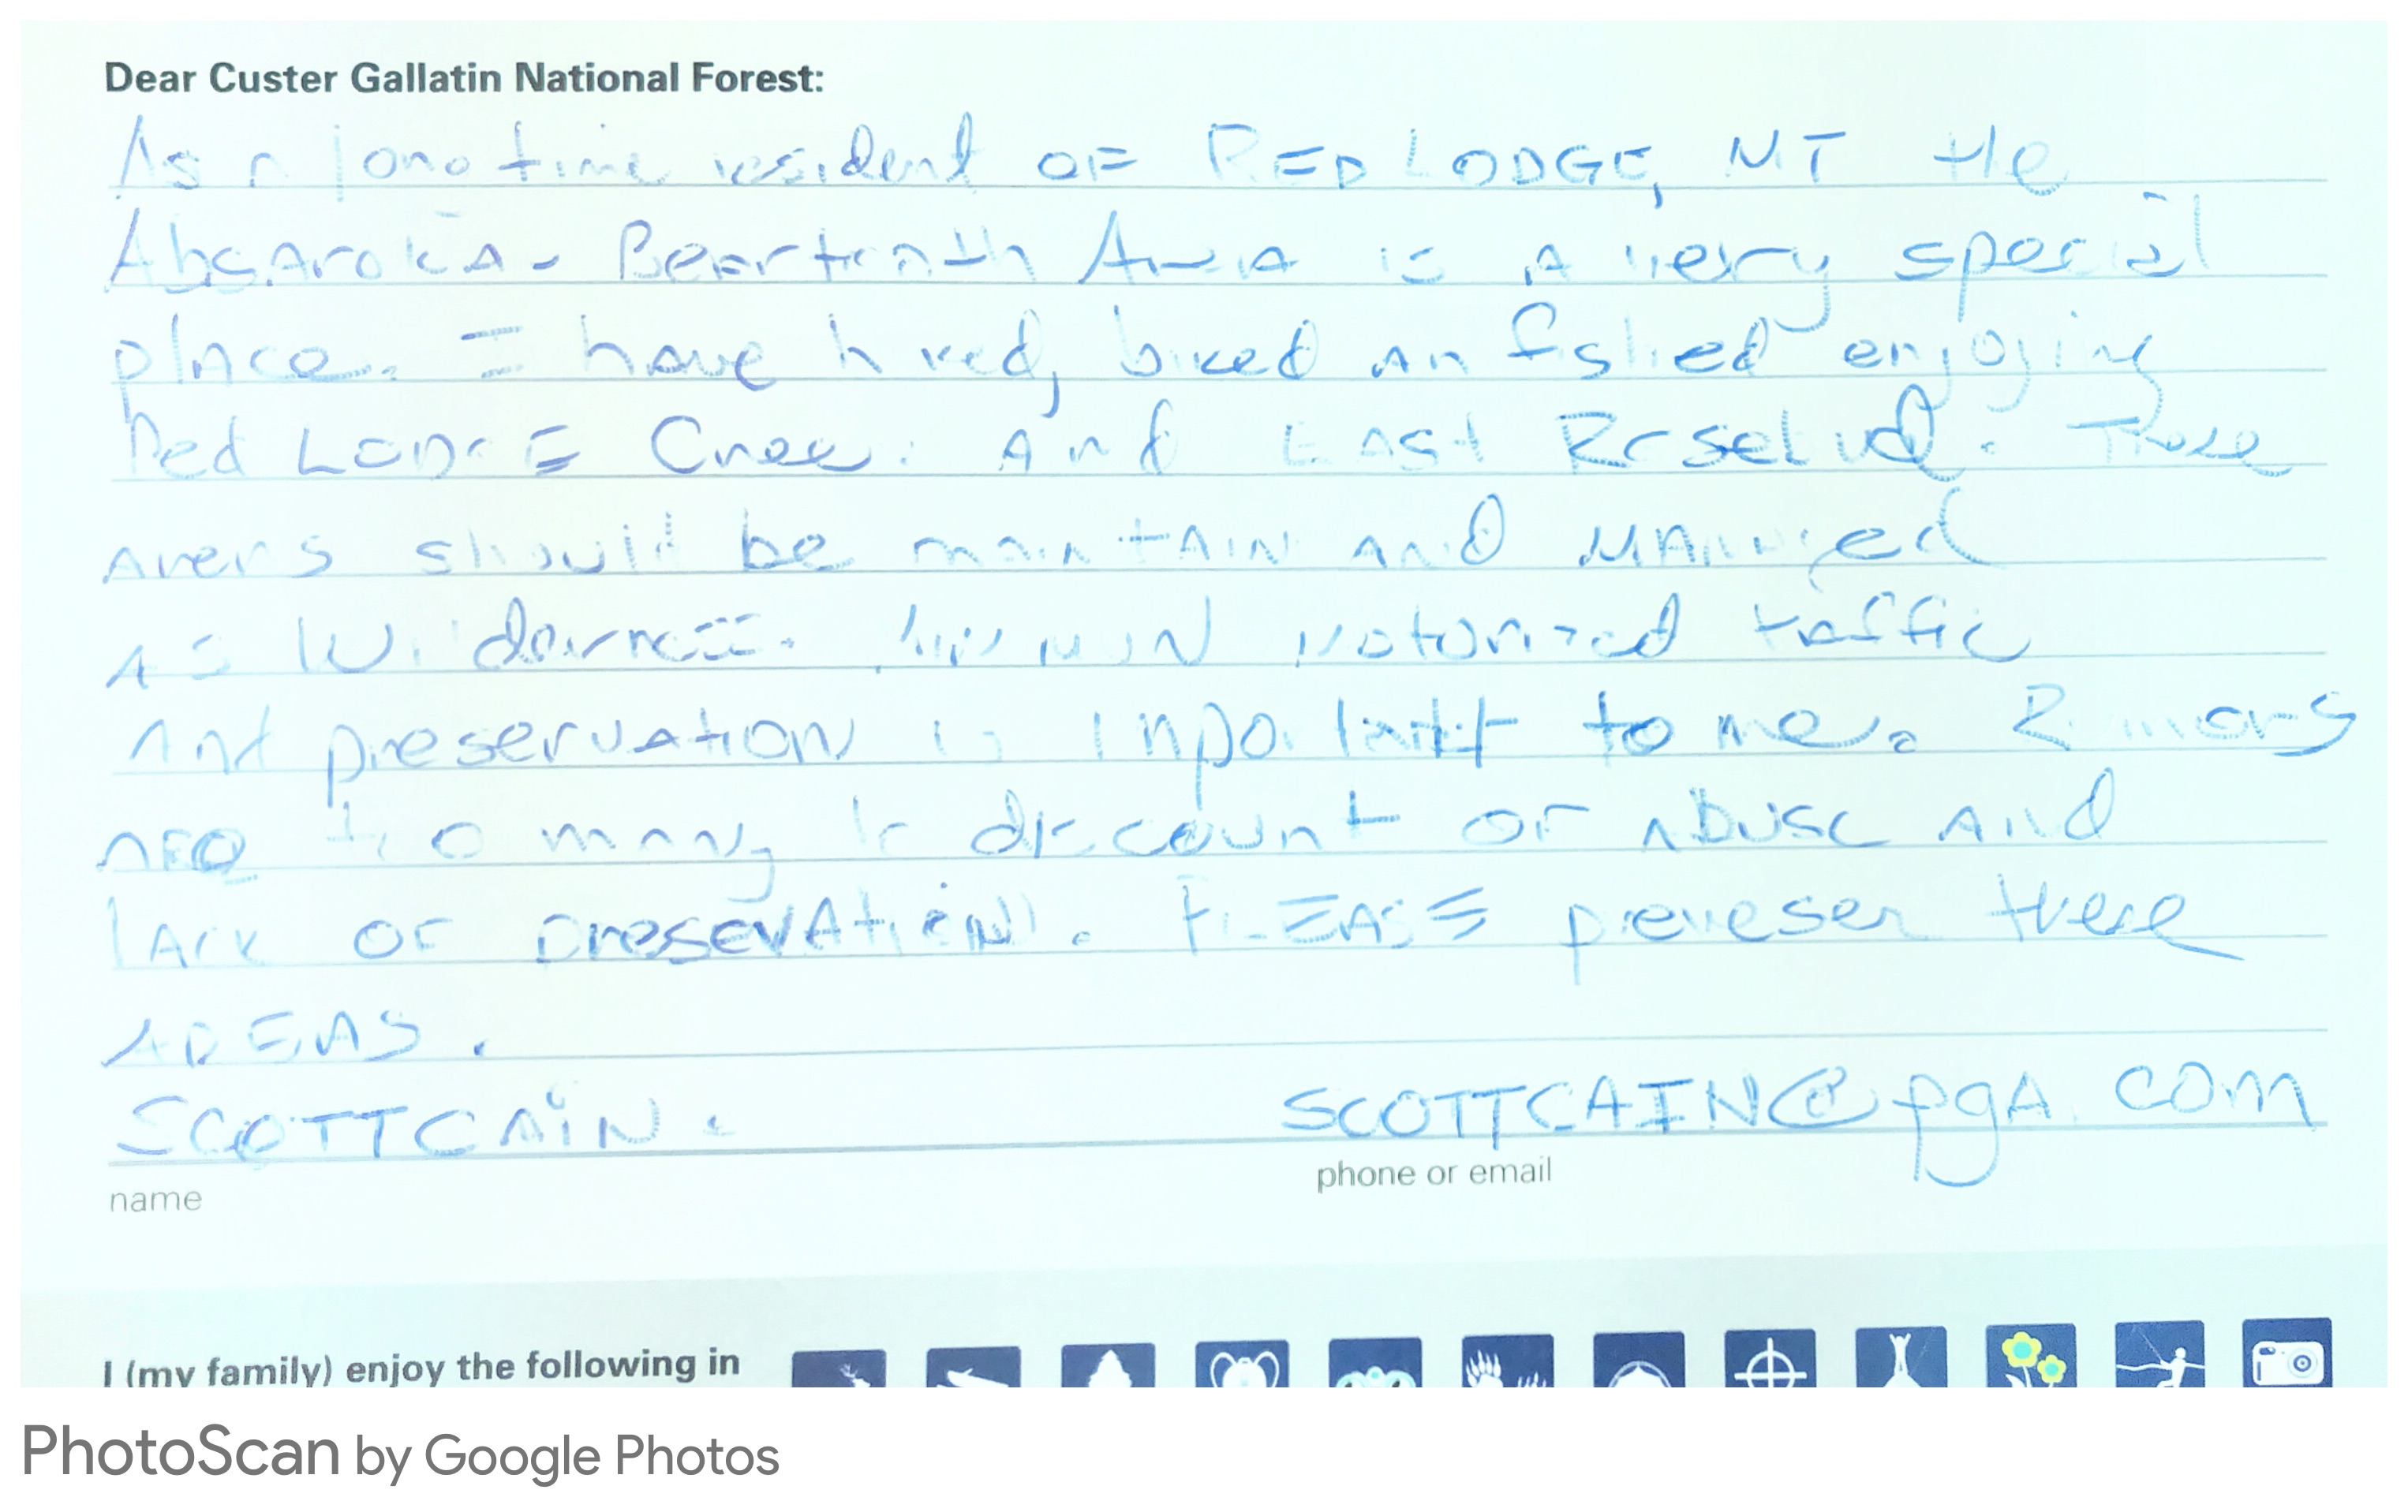 Dear Custer Gallatin National Forest:
As a long time resident OF RED LODGE, MT the
Absaroka - Beartooth Area is A very special
place. I have hiked, biked an fished enjoying
Red LODGE Creek And East Rosebud. These
Areas should be maintain AND MANAGED
As Wilderness. motorized traffic
And preservation is important to me.
are too many to discount OF ABUSE AND
LACK OF presevAtion. PLEASE preveser these
AREAS.
SCOTT CAIN. SCOTTCAIN@pgA.com
name phone or email
I (my family) enjoy the following in
PhotoScan by Google Photos